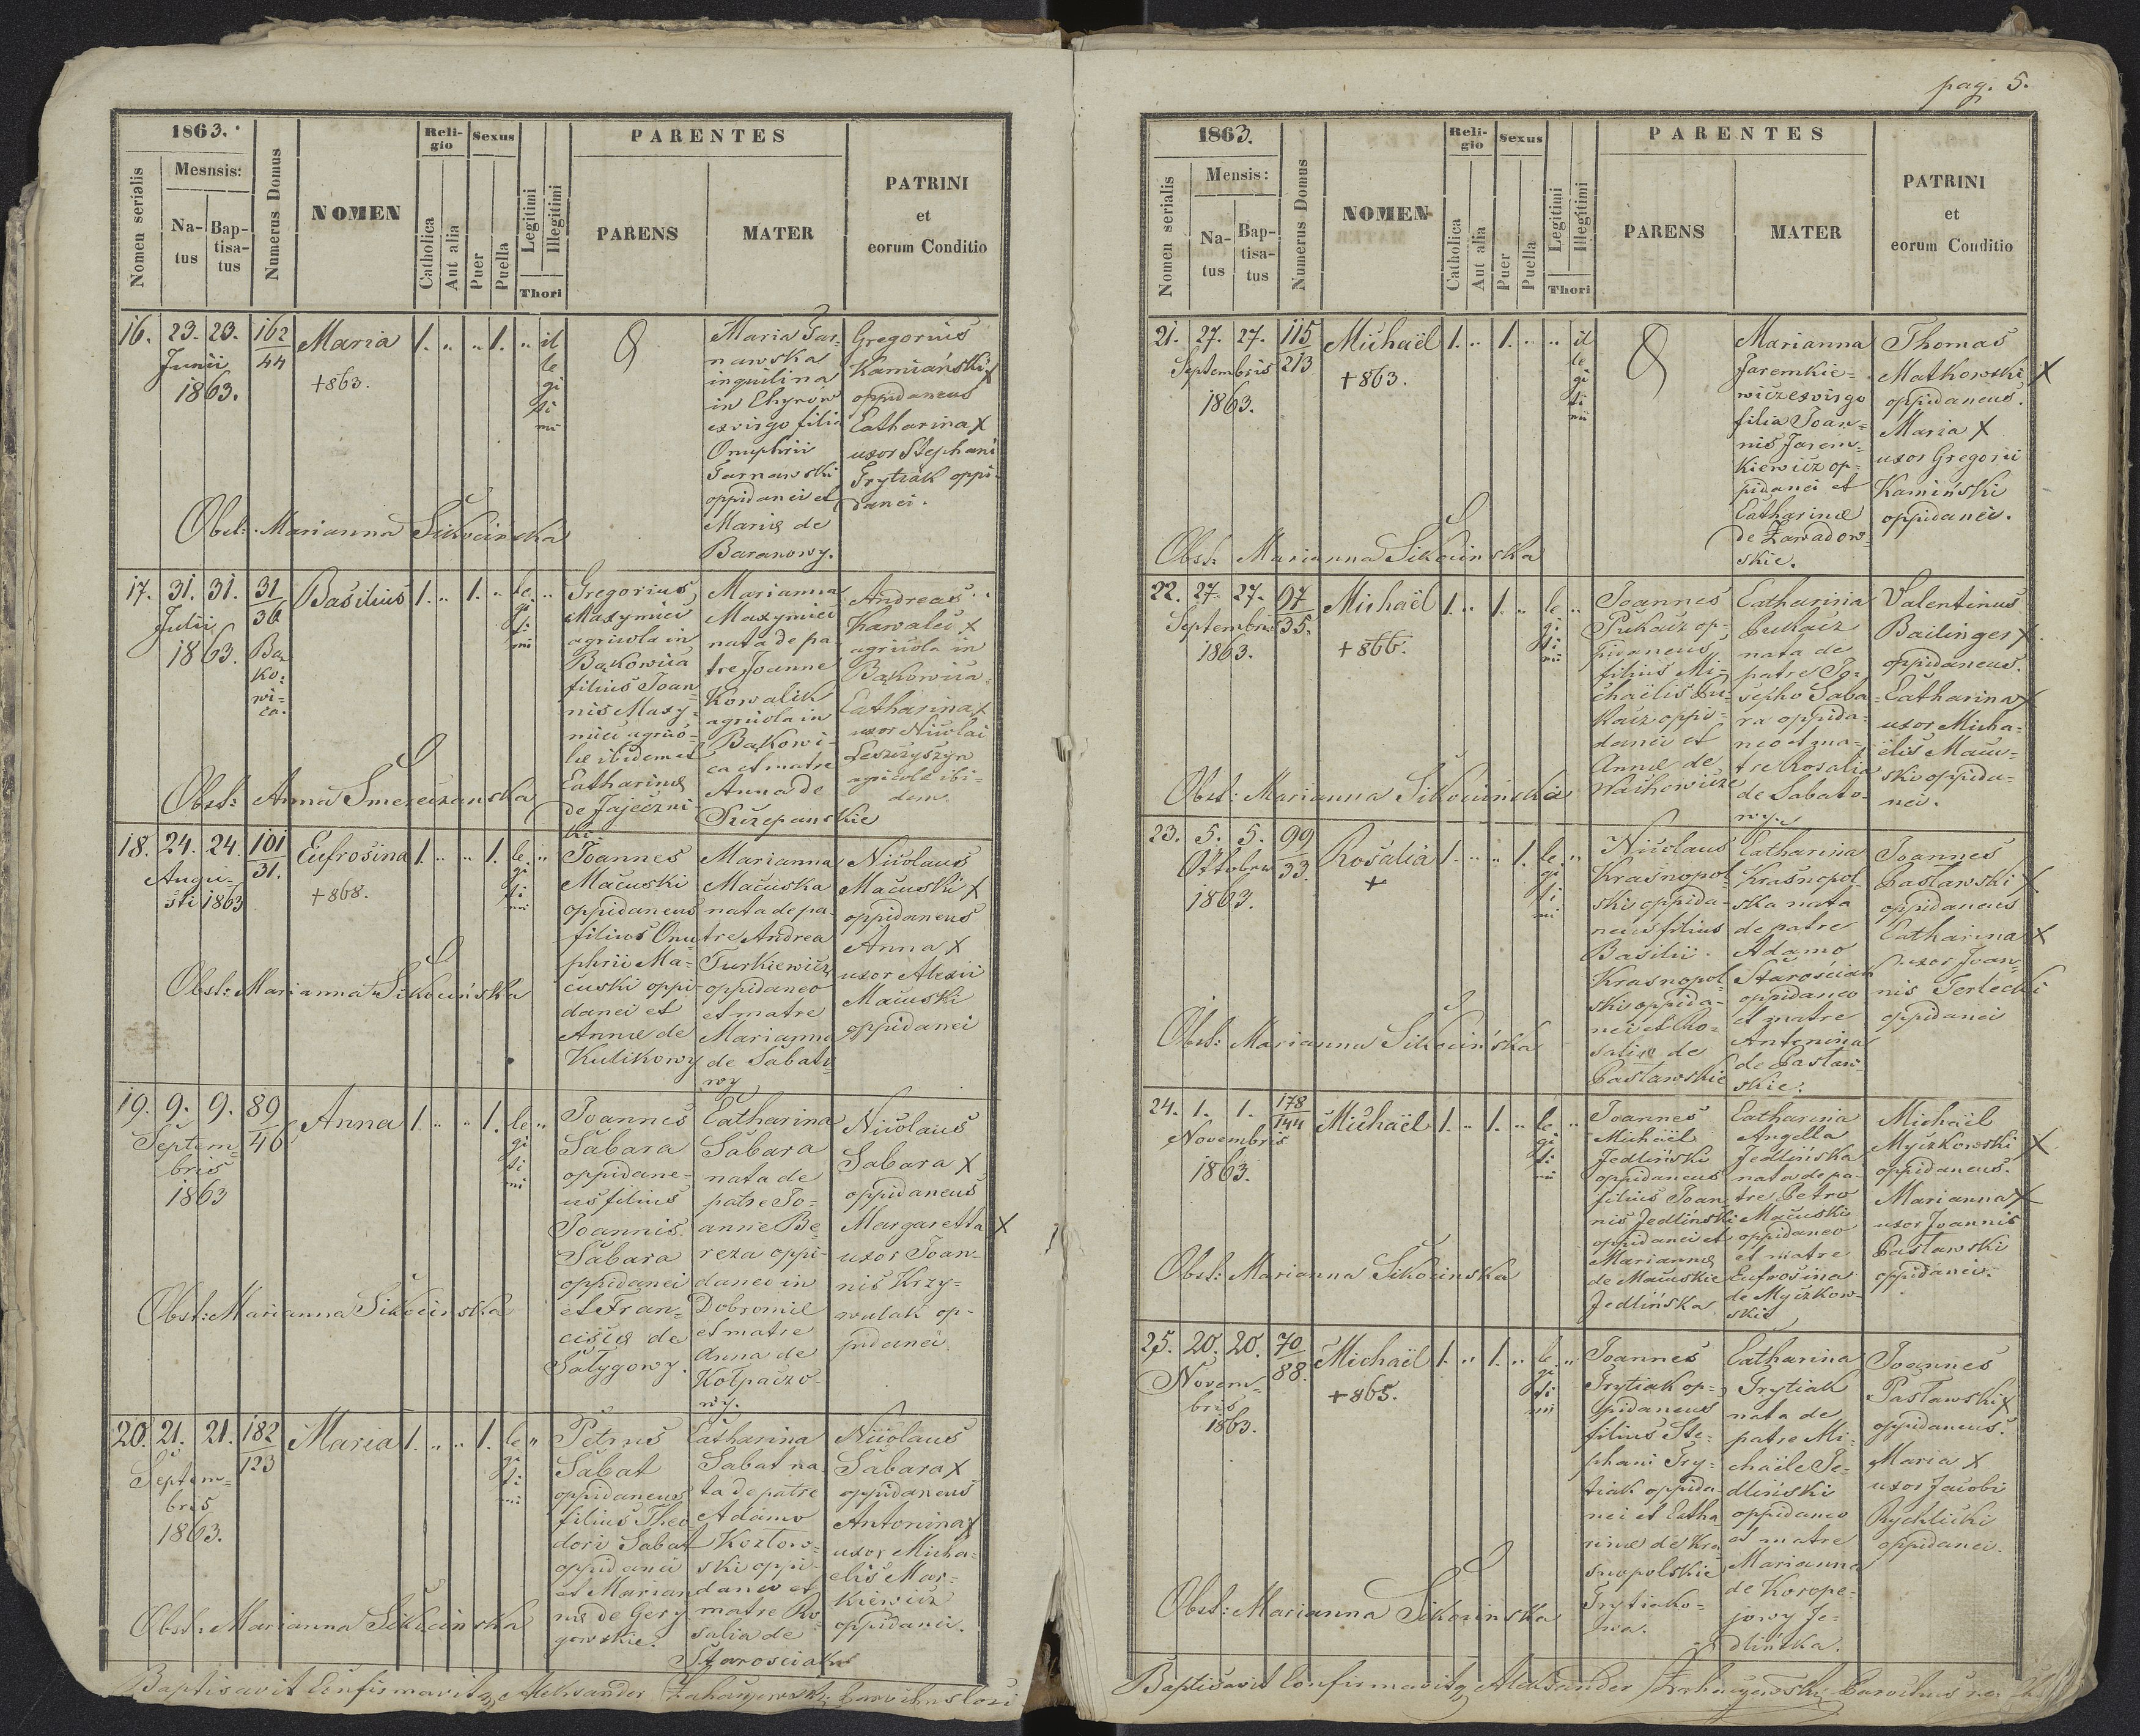 1863.
Mesnsis:
Nomen serialis
Na-
tus
Bap-
tisa-
tus
Numerus Domus
NOMEN
Reli-
gio
Catholica
Aut alia
Sexus
Puer
Puella
Legitimi
Illegitimi
Thori
PARENTES
PARENS
MATER
PATRINI
et
eorum Conditio
16. 23. 23.
Junii
1863.
162
44
Maria
+863.
1. " " 1. "
il
le
gi
ti
mi
Maria Tar-
nawska
inquilina
in Chyrow
exvirgo filia
Onuphrii
Tarnawski
oppidanei et
Mariæ de
Baranowy.
Gregorius
Kamiański X
oppidaneus
Catharina X
uxor Stephani
Trytiak oppi-
danei.
Obst: Marianna Sikocinska
17. 31. 31.
Julii
1863.
31
36
Bąko-
wi-
ca.
Basilius
1. " 1. "
le
gi
ti
mi
"
Gregorius
Maxymici
agricola in
Bąkowica
filius Joan-
nis Maxy-
mici agrico-
læ ibidem et
Catharinæ
de Jajeczni-
ki.
Marianna
Maxymici
nata de pa-
tre Joanne
Kowalik
agricola in
Bąkowi-
ca et matre
Anna de
Szczepanskie
Andreas
Kawalec X
agricola in
Bąkowica
Catharina X
uxor Nicolai
Leszczyszyn
agricolæ ibi-
dem.
Obst: Anna Smereczanska
18. 24. 24.
Augu-
sti 1863
101
31.
Eufrosina
+868.
1. " " 1.
le
gi
ti
mi
"
Joannes
Macuski
oppidaneus
filius Onu-
phrii Ma-
cuski oppi-
danei et
Annæ de
Kulikowy
Marianna
Macuska
nata de pa-
tre Andrea
Turkiewicz
oppidaneo
et matre
Marianna
de Sabato-
wy
Nicolaus
Macuski X
oppidaneus
Anna X
uxor Alexii
Macuski
oppidanei
Obst: Marianna Sikocińska
19. 9. 9.
Septem-
bris
1863
89
46
Anna
1. " " 1.
le
gi
ti
mi
"
Joannes
Sabara
oppidane-
us filius
Joannis
Sabara
oppidanei
et Fran-
ciscæ de
Sałygowy.
Catharina
Sabara
nata de
patre Jo-
anne Be-
reza oppi-
daneo in
Dobromil
et matre
Anna de
Kołpaczo-
wy.
Nicolaus
Sabara X
oppidaneus
Margaretta X
uxor Joan-
nis Krzy-
wulak op-
pidanei
Obst: Marianna Sikocinska
20. 21. 21.
Septem-
bris
1863.
182
123
Maria
1. " " 1.
le
gi
ti
mi
"
Petrus
Sabat
oppidaneus
filius Theo-
dori Sabat
oppidanei
et Marian-
næ de Gery-
gowskie.
Catharina
Sabat na-
ta de patre
Adamo
Kozłow-
ski oppi-
daneo et
matre Ro-
salia de
Starosciak
Nicolaus
Sabara X
oppidaneus
Antonina X
uxor Micha-
elis Mar-
kiewicz
oppidanei.
Obst: Marianna Sikocinska
Baptisavit Confirmavitq Aleksander
pag. 5.
1863.
Mensis:
Nomen serialis
Na-
tus
Bap-
tisa-
tus
Numerus Domus
NOMEN
Reli-
gio
Catholica
Aut alia
Sexus
Puer
Puella
Legitimi
Illegitimi
Thori
PARENTES
PARENS
MATER
PATRINI
et
eorum Conditio
21. 27. 27.
Septembris
1863.
115
213
Michaël
+863.
1. " 1. " "
il
le
gi
ti
mi
Marianna
Jaremkie-
wicz exvirgo
filia Joan-
nis Jarem-
kiewicz op-
pidanei et
Catharinæ
de Zawadow-
skie.
Thomas
Matkowski X
oppidaneus.
Maria X
uxor Gregorii
Kamiński
oppidanei.
Obst: Marianna Sikocinska
22. 27. 27.
Septembris
1863.
97
35.
Michaël
+866.
1. " 1. "
le
gi
ti
mi
"
Joannes
Pukacz op-
pidaneus
filius Mi-
chaëlis Pu-
kacz oppi-
danei et
Annæ de
Wachowicze
Catharina
Pukacz
nata de
patre Jo-
sepho Saba-
ra oppida-
neo et ma-
tre Rosalia
de Sabato-
wy.
Valentinus
Bailinger X
oppidaneus.
Catharina X
uxor Micha-
ëlis Macu-
ski oppida-
nei.
Obst: Marianna Sikocinska
23. 5. 5.
Octobris
1863.
99
33.
Rosalia
+
1. " " 1.
le
gi
ti
mi
"
Nicolaus
Krasnopol-
ski oppida-
neus filius
Basilii
Krasnopol-
ski oppida-
nei et Ro-
saliæ de
Pasławskie
Catharina
Krasnopol-
ska nata
de patre
Adamo
Starościak
oppidaneo
et matre
Antonina
de Pasław-
skie.
Joannes
Pasławski X
oppidaneus
Catharina X
uxor Joan-
nis Terlecki
oppidanei
Obst: Marianna Sikocińska
24. 1. 1.
Novembris
1863.
178
144
Michaël
1. " 1. "
le
gi
ti
mi
"
Joannes
Michaël
Jedliński
oppidaneus
filius Joan-
nis Jedliński
oppidanei et
Mariannæ
de Macuskie
Jedlińska
Catharina
Angella
Jedlińska
nata de pa-
tre Petro
Macuski
oppidaneo
et matre
Eufrosina
de Myczkow-
skie
Michaël
Myczkowski X
oppidaneus.
Marianna X
uxor Joannis
Pasławski
oppidanei.
Obst: Marianna Sikocinska
25. 20. 20.
Novem-
bris
1863.
70
88.
Michaël
+865.
1. " 1. "
le
gi
ti
mi
"
Joannes
Trytiak op-
pidaneus
filius Ste-
phani Try-
tiak oppida-
nei et Catha-
rinæ de Kra-
snopolskie
Trytiako-
wa.
Catharina
Trytiak
nata de
patre Mi-
chaële Je-
dliński
oppidaneo
et matre
Marianna
de Korope-
jowy Je-
dlińska.
Joannes
Pasławski X
oppidaneus.
Maria X
uxor Jacobi
Rychlicki
oppidanei.
Obst: Marianna Sikocinska
Baptisavit Confirmavitq Aleksander